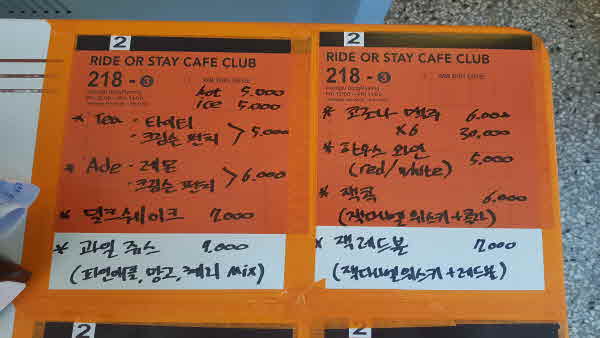 2
RIDE OR STAY CAFE CLUB
218 - 3
hot 5.000
ice 5.000
* Tea · 타이티
· 크림슨 펀치 > 5.000
* Ade · 레몬
· 크림슨 펀치 > 6.000
* 밀크쉐이크 7.000
* 과일 쥬스 9.000
(파인애플, 망고, 체리 mix)
2
RIDE OR STAY CAFE CLUB
218 - 3
* 코로나 맥주 6.000
x6 30,000
* 하우스 와인 5.000
(red/white)
* 잭콕 6,000
(잭다니엘 위스키+콜라)
* 잭레드불 7.000
(잭다니엘 위스키+레드불)
2
2